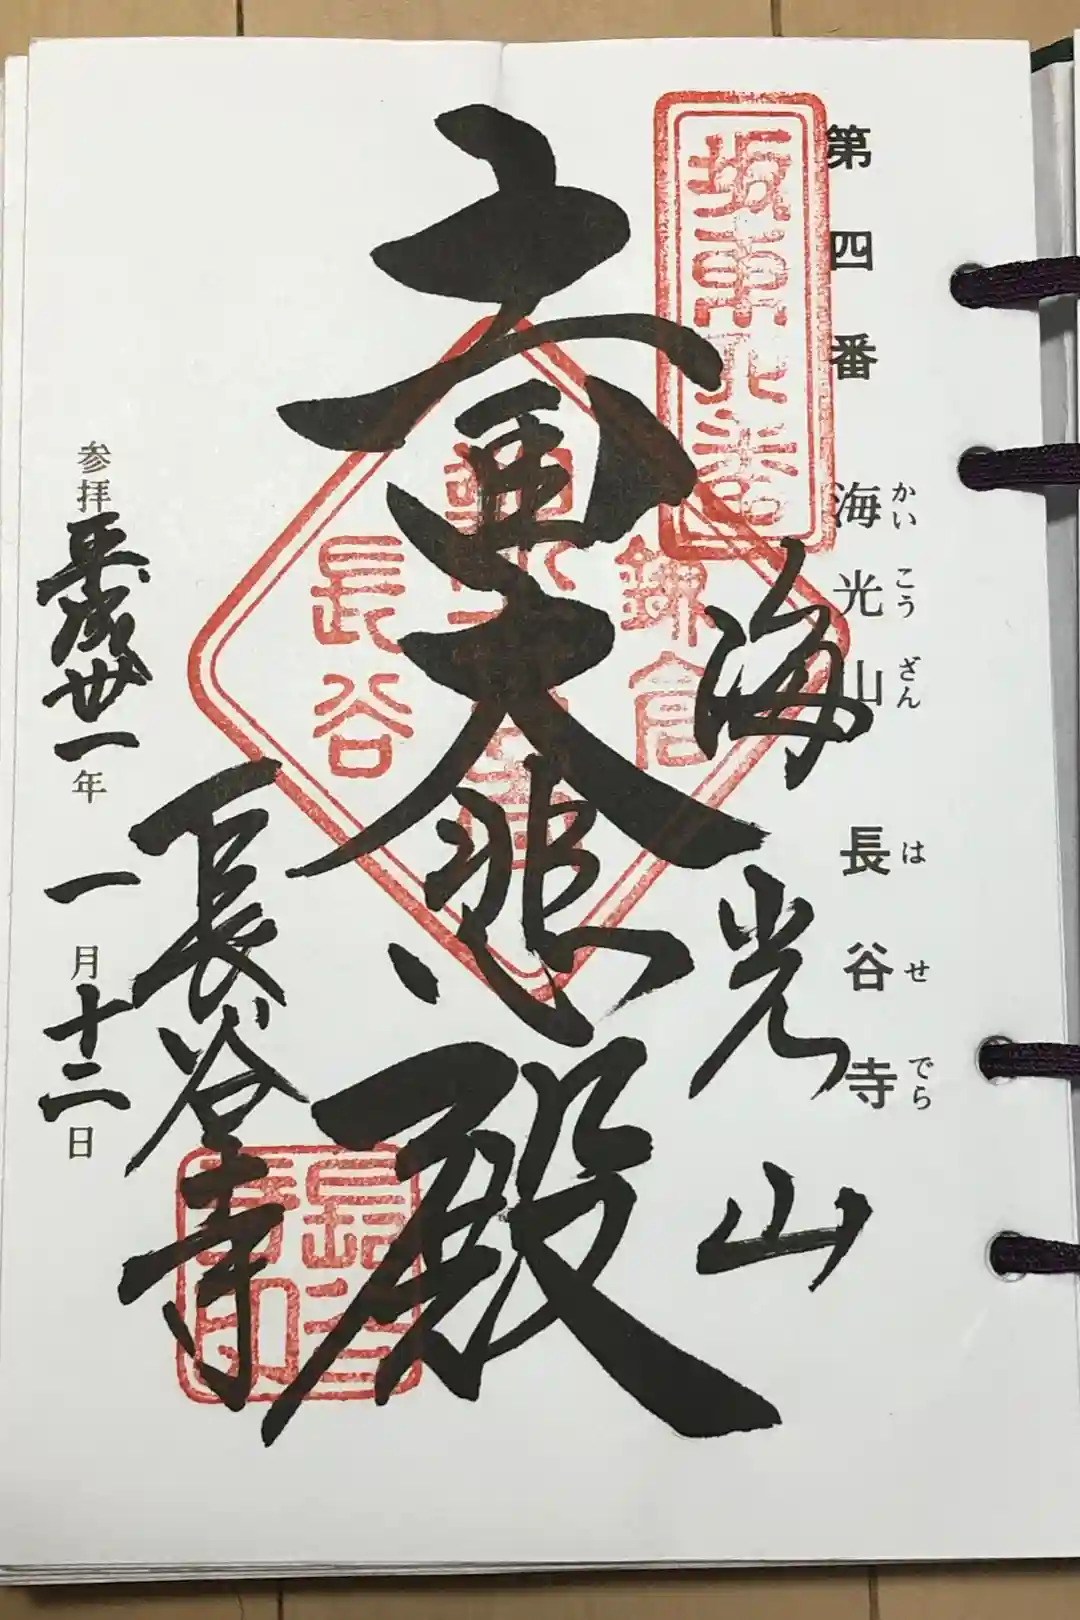 第四番 海光山 長谷寺
かいこうざん はせでら
坂東四番
海光山
鎌倉
大悲殿
長谷
長谷寺
長谷寺印
参拝平成卅一年一月十二日